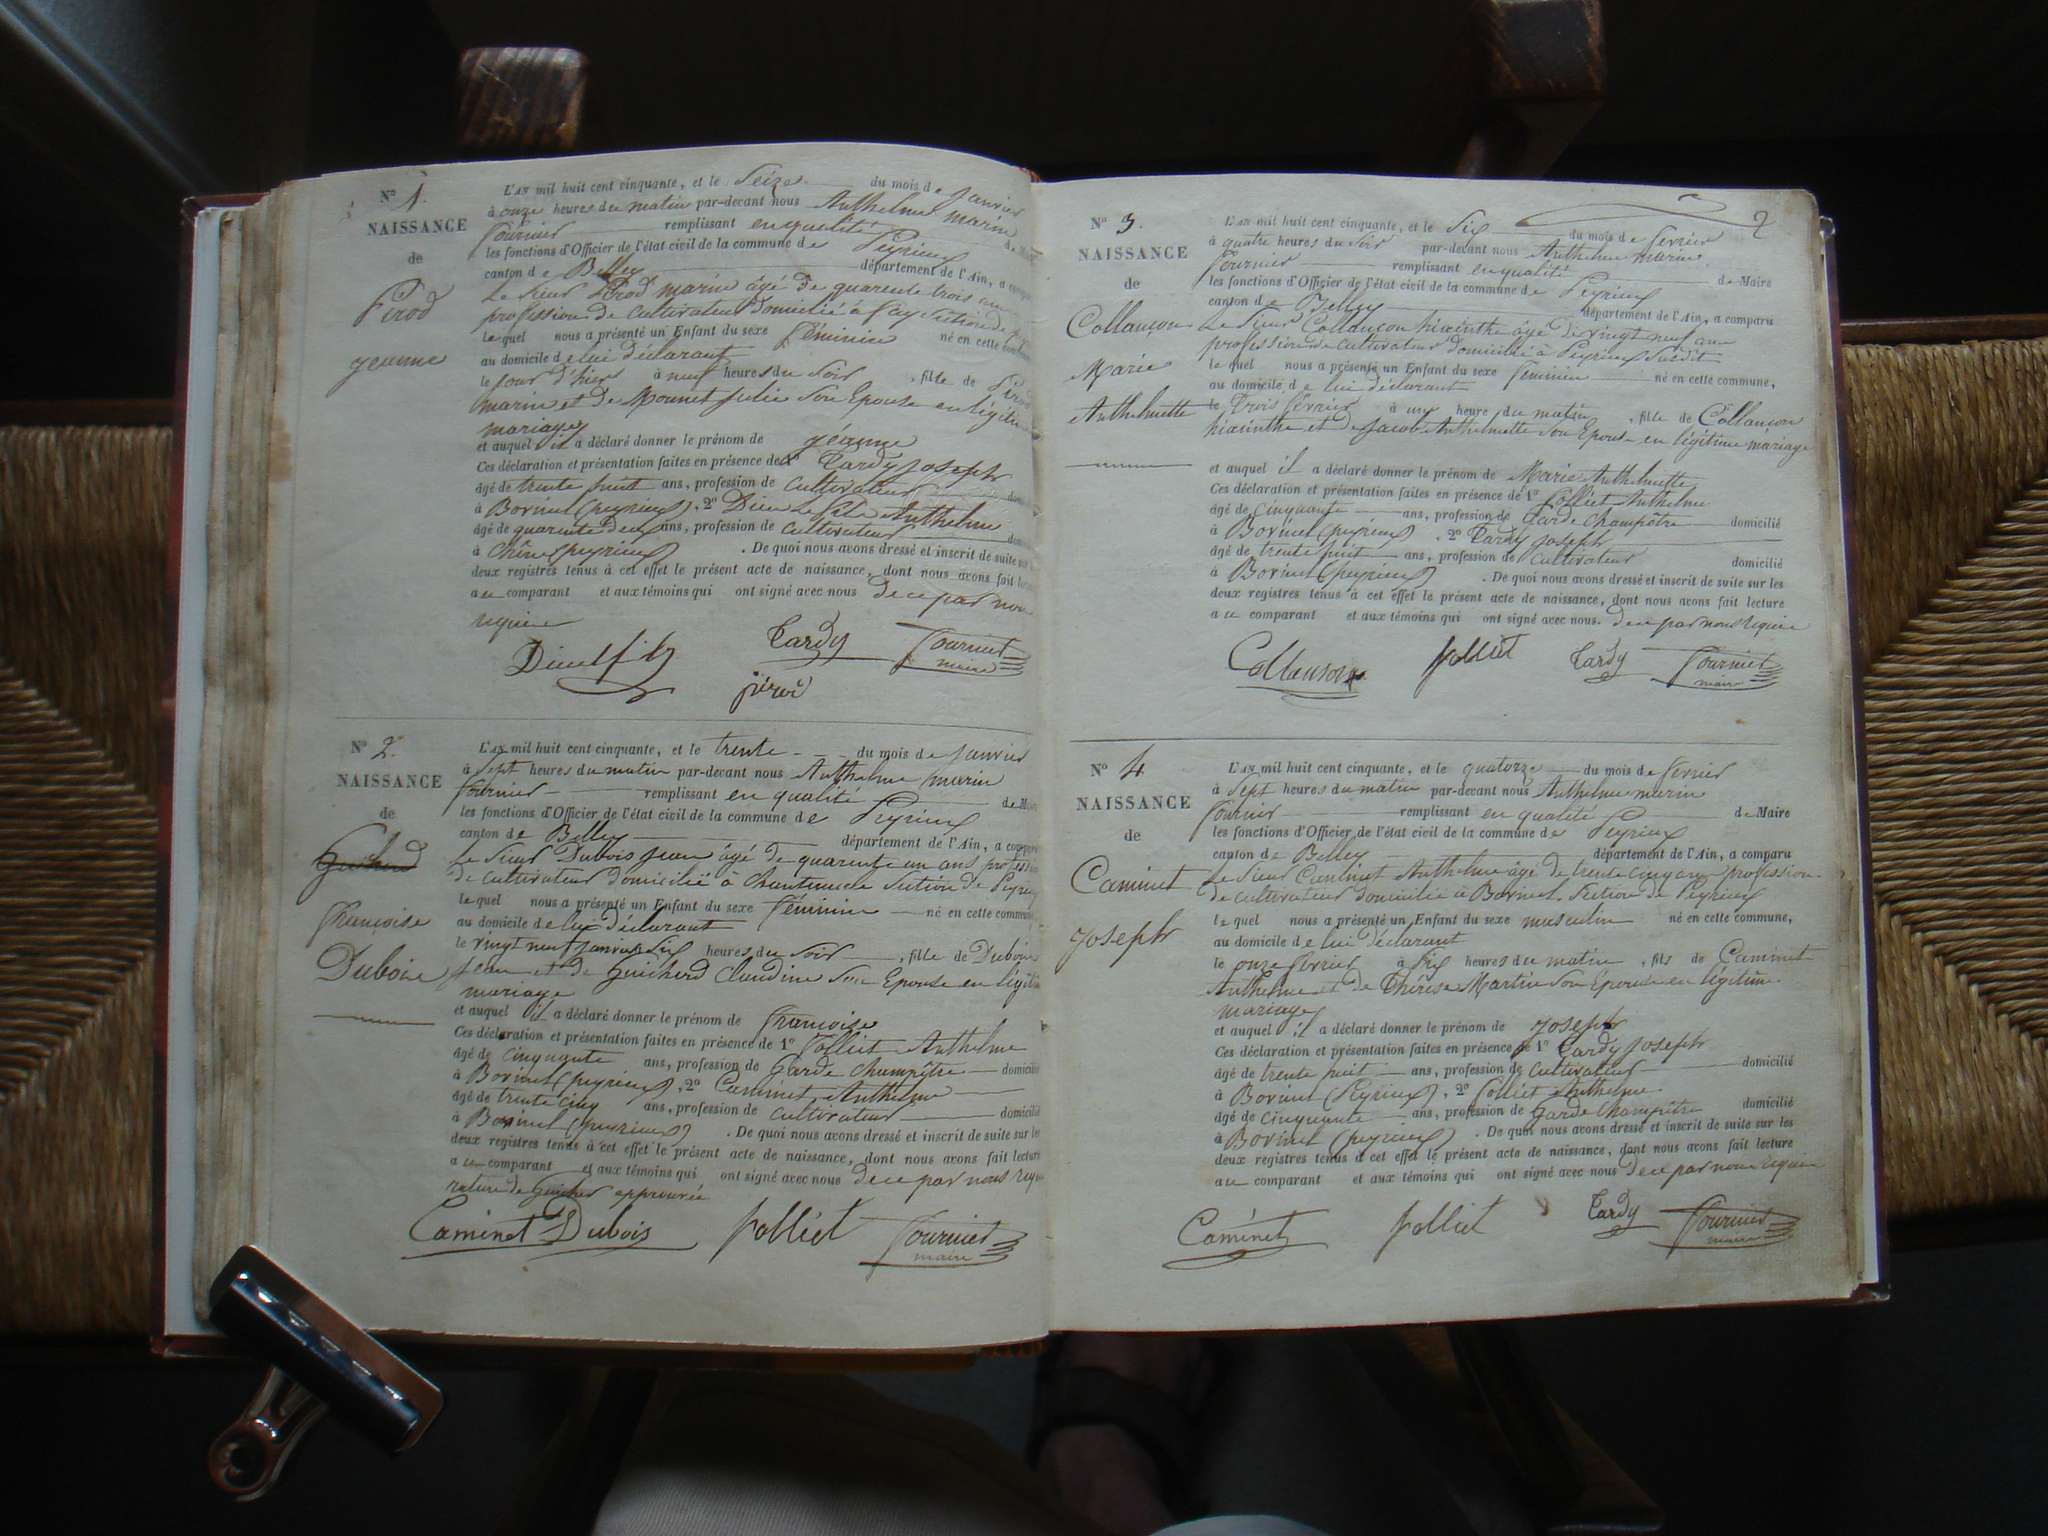 N° 1.
NAISSANCE
de
Pirod
Jeanne
L'AN mil huit cent cinquante, et le Seize du mois de Janvier
à onze heures du matin par-devant nous Anthelme marin
Fournier remplissant en qualité de
les fonctions d'Officier de l'état civil de la commune de Peyrieux
canton de Belley département de l'Ain, a
Le Sieur Pirod marin âgé de quarente trois ans
profession de cultivateur domicilié à Fay Section de
lequel nous a présenté un Enfant du sexe féminin né en cette
au domicile de lui déclarant
le jour d'hier à neuf heures du Soir, fille de Pirod
marin et de Mounet Julie Son Epouse en légitime
mariage
et auquel il a déclaré donner le prénom de Jeanne
Ces déclaration et présentation faites en présence de 1° Tardy Joseph
âgé de trente huit ans, profession de cultivateur
à Borinet (peyrieux), 2° Dieu Le fils Anthelme
âgé de quarente deux ans, profession de cultivateur
à (peyrieux). De quoi nous avons dressé et inscrit de suite sur
deux registres tenus à cet effet le présent acte de naissance, dont nous avons fait
au comparant et aux témoins qui ont signé avec nous de ce par nous
requis
Tardy
Fournier
maire
pirod
N° 2.
NAISSANCE
de
Guicherd
françoise
Dubois
L'AN mil huit cent cinquante, et le trente du mois de Janvier
à Sept heures du matin par-devant nous Anthelme marin
Fournier remplissant en qualité de Maire
les fonctions d'Officier de l'état civil de la commune de Peyrieux
canton de Belley département de l'Ain, a comparu
Le Sieur Dubois Jean âgé de quarente un ans profession
de cultivateur domicilié à Section de Peyrieux
lequel nous a présenté un Enfant du sexe féminin né en cette commune
au domicile de lui déclarant
le vingt neuf janvier Six heures du Soir, fille de Dubois
Jean et de Guicherd Claudine Son Epouse en légitime
mariage
et auquel il a déclaré donner le prénom de françoise
Ces déclaration et présentation faites en présence de 1° Jolliet Anthelme
âgé de cinquante ans, profession de Garde champêtre domicilié
à Borinet (peyrieux), 2° Caminet Anthelme
âgé de trente cinq ans, profession de cultivateur domicilié
à Borinet (peyrieux). De quoi nous avons dressé et inscrit de suite sur les
deux registres tenus à cet effet le présent acte de naissance, dont nous avons fait lecture
au comparant et aux témoins qui ont signé avec nous de ce par nous requis
rature de Guicher approuvée
Caminet Dubois Jolliet Fournier
maire
2
N° 3.
NAISSANCE
de
Collançon
Marie
Anthelmette
L'AN mil huit cent cinquante, et le Six du mois de fevrier
à quatre heures du Soir par-devant nous Anthelme marin
Fournier remplissant en qualité de Maire
les fonctions d'Officier de l'état civil de la commune de Peyrieux
canton de Belley département de l'Ain, a comparu
Le Sieur Collançon hiacinthe âgé de vingt neuf ans
profession de cultivateur domicilié à Peyrieux Susdit
lequel nous a présenté un Enfant du sexe féminin né en cette commune,
au domicile de lui déclarant
le trois fevrier à une heure du matin, fille de Collançon
hiacinthe et de Jacob Anthelmette Son Epouse en légitime mariage
et auquel il a déclaré donner le prénom de Marie Anthelmette
Ces déclaration et présentation faites en présence de 1° Jolliet Anthelme
âgé de cinquante ans, profession de Garde Champêtre domicilié
à Borinet (peyrieux), 2° Tardy Joseph
âgé de trente huit ans, profession de cultivateur domicilié
à Borinet (peyrieux). De quoi nous avons dressé et inscrit de suite sur les
deux registres tenus à cet effet le présent acte de naissance, dont nous avons fait lecture
au comparant et aux témoins qui ont signé avec nous. de ce par nous requis
Collanson Jolliet Tardy Fournier
maire
N° 4.
NAISSANCE
de
Caminet
Joseph
L'AN mil huit cent cinquante, et le quatorze du mois de fevrier
à Sept heures du matin par-devant nous Anthelme marin
Fournier remplissant en qualité de Maire
les fonctions d'Officier de l'état civil de la commune de Peyrieux
canton de Belley département de l'Ain, a comparu
Le Sieur Caminet Anthelme âgé de trente cinq ans profession
de cultivateur domicilié à Borinet Section de Peyrieux
lequel nous a présenté un Enfant du sexe masculin né en cette commune,
au domicile de lui déclarant
le onze fevrier à Six heures du matin, fils de Caminet
Anthelme et de Thérèse Martin Son Epouse en légitime
mariage
et auquel il a déclaré donner le prénom de Joseph
Ces déclaration et présentation faites en présence de 1° Tardy Joseph
âgé de trente huit ans, profession de cultivateur domicilié
à Borinet (Peyrieux), 2° Jolliet Anthelme
âgé de cinquante ans, profession de Garde Champêtre domicilié
à Borinet (peyrieux). De quoi nous avons dressé et inscrit de suite sur les
deux registres tenus à cet effet le présent acte de naissance, dont nous avons fait lecture
au comparant et aux témoins qui ont signé avec nous de ce par nous requis
Caminet Jolliet Tardy Fournier
maire